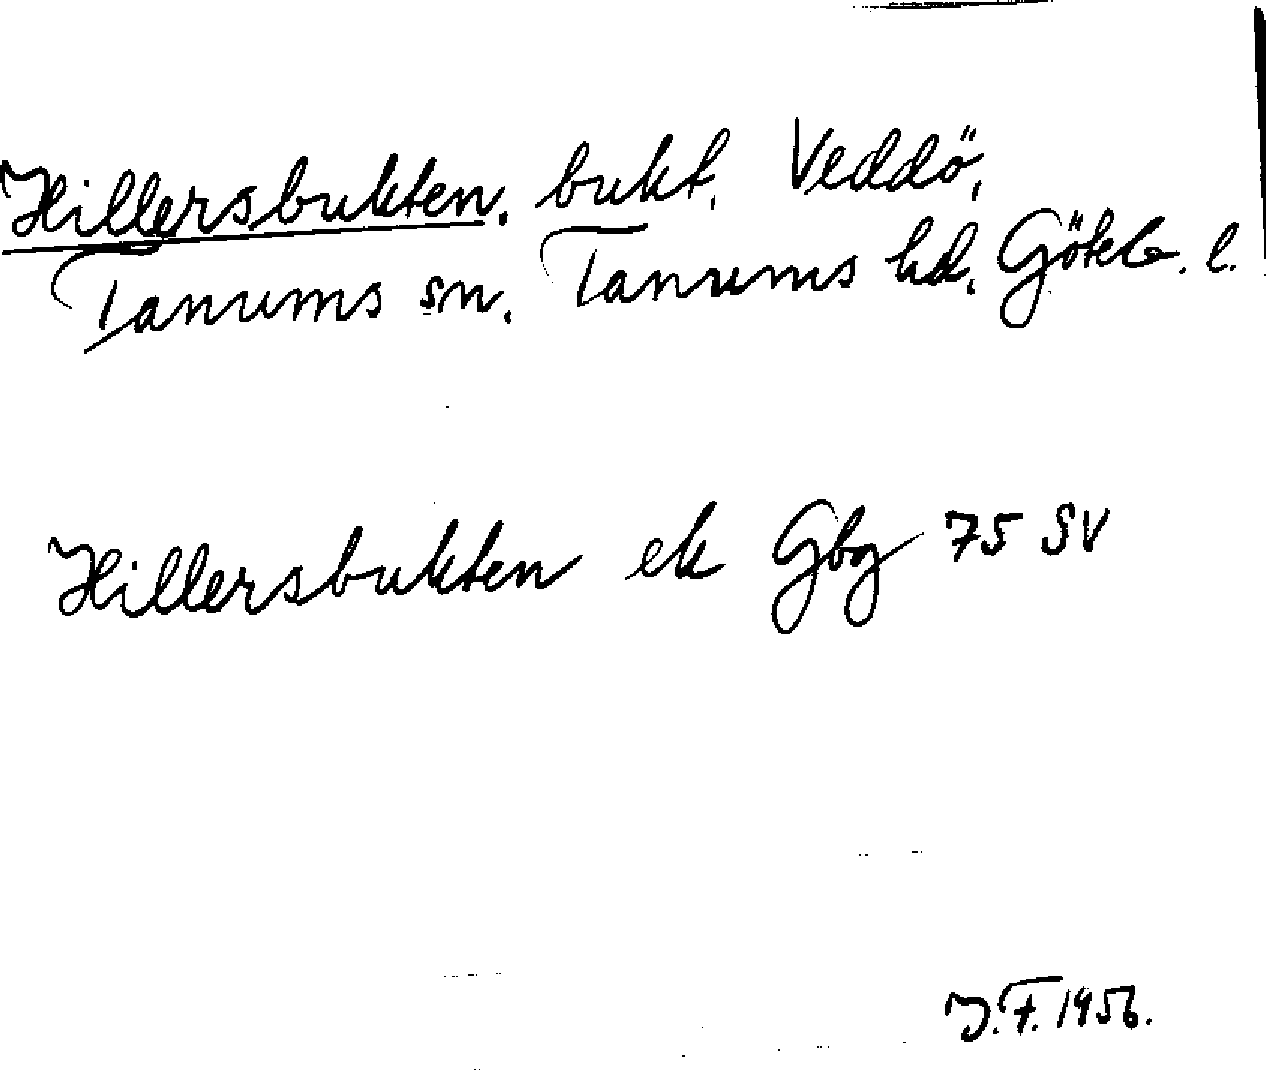 Hillersbukten. bukt. Veddö,
Tanums sn. Tanums hd. Göteb. l.
Hillersbukten ek Gbg 75 SV
J.F. 1956.